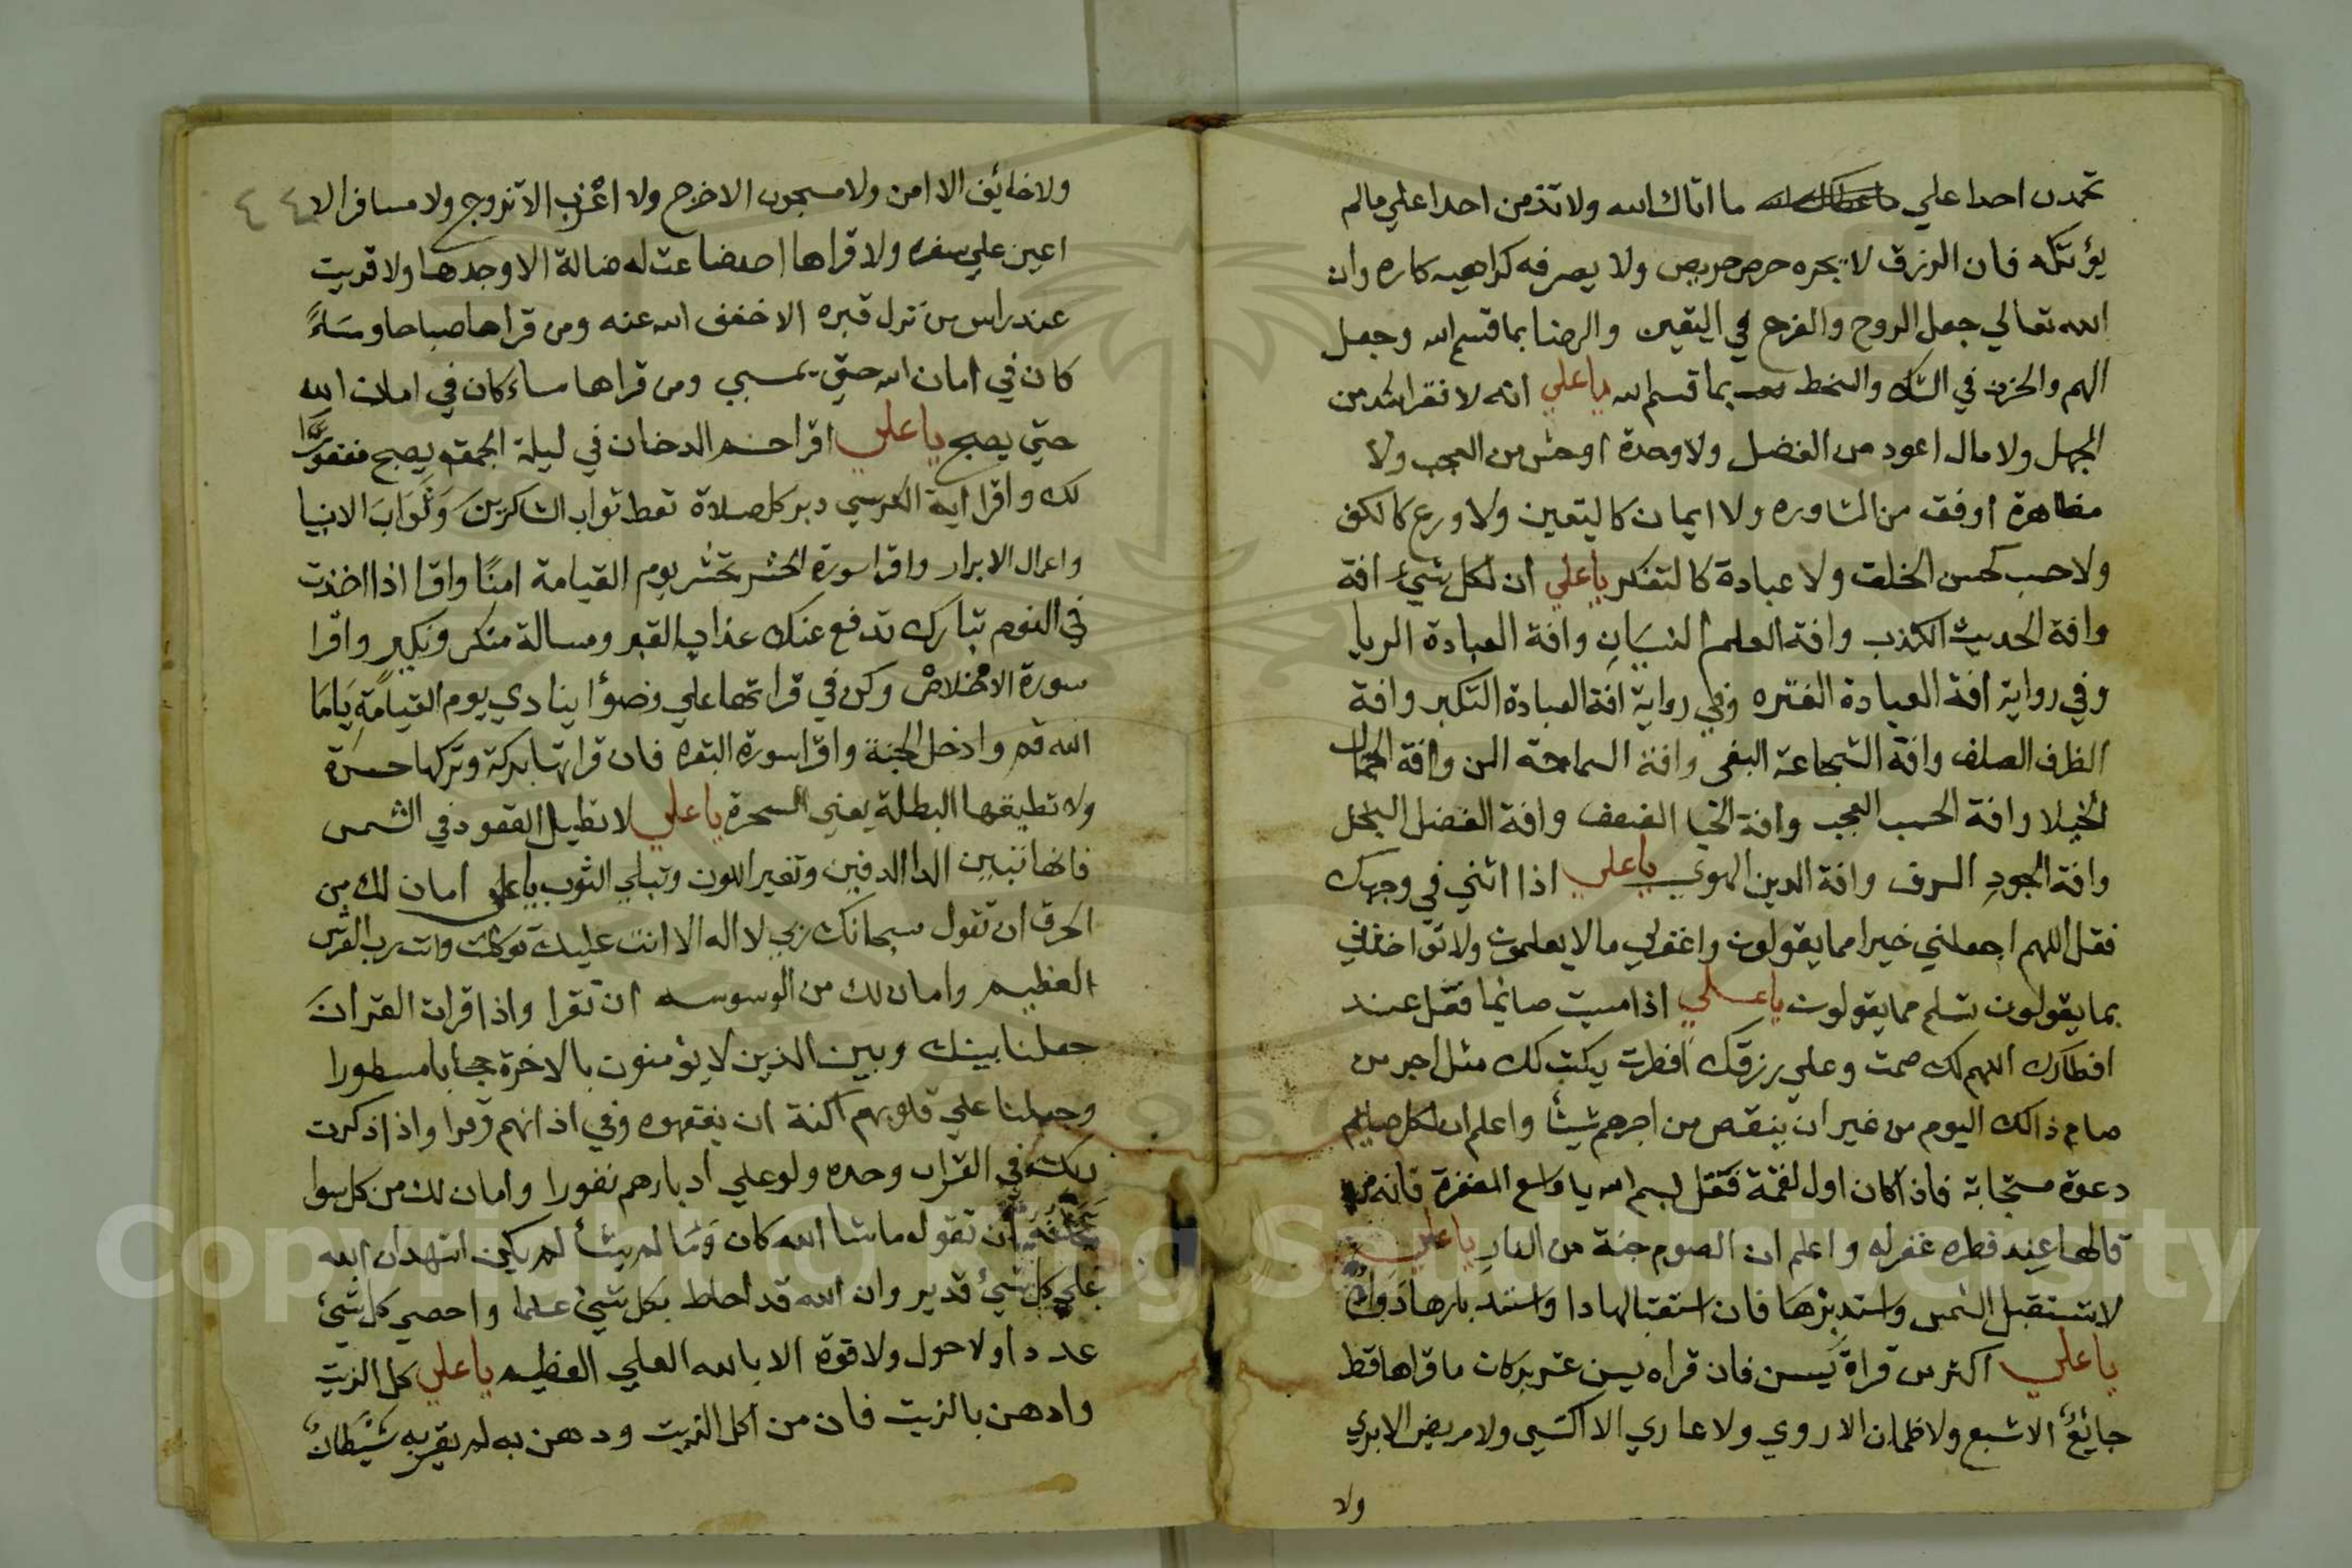 تحمدن احدا علي ما اتاك الله ولا تذمن احدا علي مالم
يؤتكه فان الرزق لا يجره حرص حريص ولا يصرفه كراهيه كاره وان
الله تعالي جعل الروح والفرح في اليقين والرضا بما قسم الله وجعل
الهم والحزن في الشك والسخط بما قسم الله يا علي انه لا فقر اشد من
الجهل ولا مال اعود من الفضل ولا وحدة اوحش من العجب ولا
مظاهرة اوفق من المشاوره ولا ايمان كاليقين ولا ورع كالكف
ولا حسب كحسن الخلق ولا عبادة كالتفكر يا علي ان لكل شيء افة
وافة الحديث الكذب وافة العلم النسيان وافة العبادة الريا
وفي رواية افة العبادة الفتره وفي رواية افة العبادة التكبر وافة
الظرف الصلف وافة الشجاعة البغي وافة السماحة المن وافة الجمال
الخيلا وافة الحسب العجب وافة الحيا الضعف وافة الفضل البخل
وافة الجود السرف وافة الدين الهوي يا علي اذا اثني في وجهك
فقل اللهم اجعلني خيرا مما يقولون واغفرلي ما لا يعلمون ولا تؤاخذني
بما يقولون تسلم مما يقولون يا علي اذا امسيت صائما فقل عند
افطارك اللهم لك صمت وعلي رزقك افطرت يكتب لك مثل اجر من
صام ذالك اليوم من غير ان ينقص من اجرهم شيئا واعلم ان لكل صايم
دعوة مستجابة فاذا كان اول لقمة فقل بسم الله يا واسع المغفرة فانه من
قالها عند فطره غفر له واعلم ان الصوم جنة من النار يا علي
لا تستقبل الشمس واستدبرها فان استقبالها دا واستدبارها دواء
يا علي اكثر من قراة يسن فان قراه يسن عشر بركات ما قراها قط
جائع الا شبع ولا ظمان الا روي ولا عاري الا اكتسي ولا مريض الا بري
ولا
٤٤
ولا خائف الا امن ولا مسجون الا خرج ولا اعزب الا تزوج ولا مسافر الا
اعين علي سفره ولا قراها احد ضاعت له ضالة الا وجدها ولا قريت
عند راس من نزل قبره الا خفف الله عنه ومن قراها صباحا ومساءً
كان في امان الله حتي يمسي ومن قراها مساء كان في امان الله
حتي يصبح يا علي اقرا حم الدخان في ليلة الجمعه يصبح مغفورًا
لك واقرا اية الكرسي دبر كل صلاة تعط ثواب الشاكرين وثواب الانبيا
واعمال الابرار واقرا سورة الحشر تحشر يوم القيامة امنًا واقرا اذا اخذت
في النوم تبارك تدفع عنك عذاب القبر ومسالة منكر ونكير واقرا
سورة الاخلاص وكن في قراتها علي وضوًا ينادي يوم القيامة يا ما
الله قم وادخل الجنة واقرا سورة البقره فان قراتها بركة وتركها حسرة
ولا تطيقها البطلة يعني السحرة يا علي لا تطيل القعود في الشمس
فانها تبين الدا الدفين وتغير اللون وتبلي الثوب يا علي امان لك من
الحرق ان تقول سبحانك ربي لا اله الا انت عليك توكلت وانت رب العرش
العظيم وامان لك من الوسوسه ان تقرا واذا قرات القران
جعلنا بينك وبين الذين لا يؤمنون بالاخرة حجابا مسطورا
وجعلنا علي قلوبهم اكنة ان يفقهوه وفي اذانهم وقرا واذا ذكرت
ربك في القران وحده ولو علي ادبارهم نفورا وامان لك من كل سوا
ان تقول ماشا الله كان وما لم يشأ لم يكن اشهد ان الله
علي كل شيء قدير وان الله قد احاط بكل شيء علما واحصي كل شيء
عددا ولا حول ولا قوة الا بالله العلي العظيم يا علي كل الزيت
وادهن بالزيت فان من اكل الزيت ودهن به لم يقربه شيطان